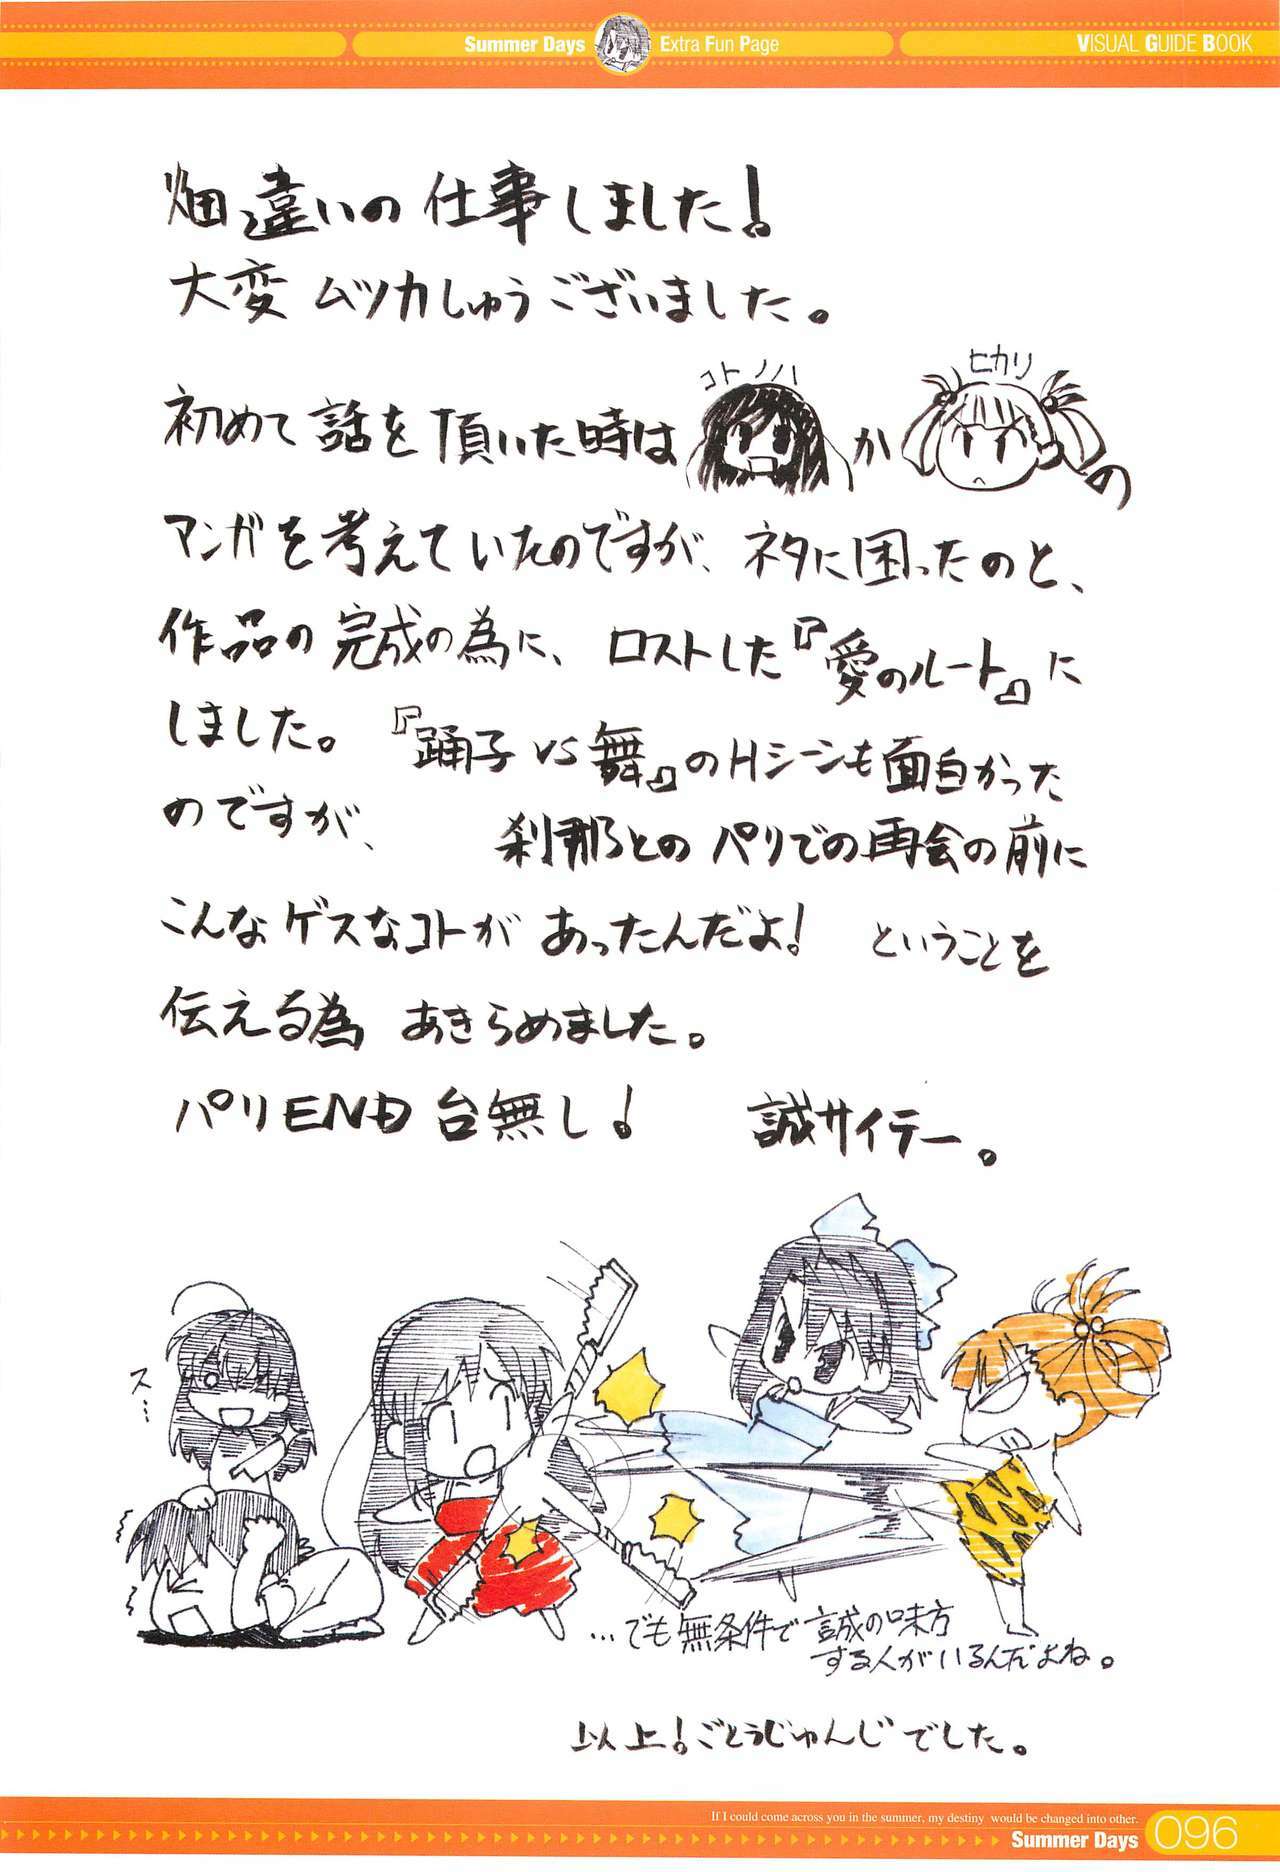 Summer Days Extra Fun Page
VISUAL GUIDE BOOK
畑違いの仕事しました!
大変ムツカしゅうございました。
コトノハ
ヒカリ
初めて話を頂いた時は か の
マンガを考えていたのですが、ネタに困ったのと、
作品の完成の為に、ロストした『愛のルート』に
しました。『踊子vs舞』のHシーンも面白かった
のですが、刹那とのパリでの再会の前に
こんなゲスなコトがあったんだよ! ということを
伝える為 あきらめました。
パリEND台無し! 誠サイテー。
ス…
…でも無条件で誠の味方
する人がいるんだよね。
以上!ごとうじゅんじでした。
If I could come across you in the summer, my destiny would be changed into other.
Summer Days 096